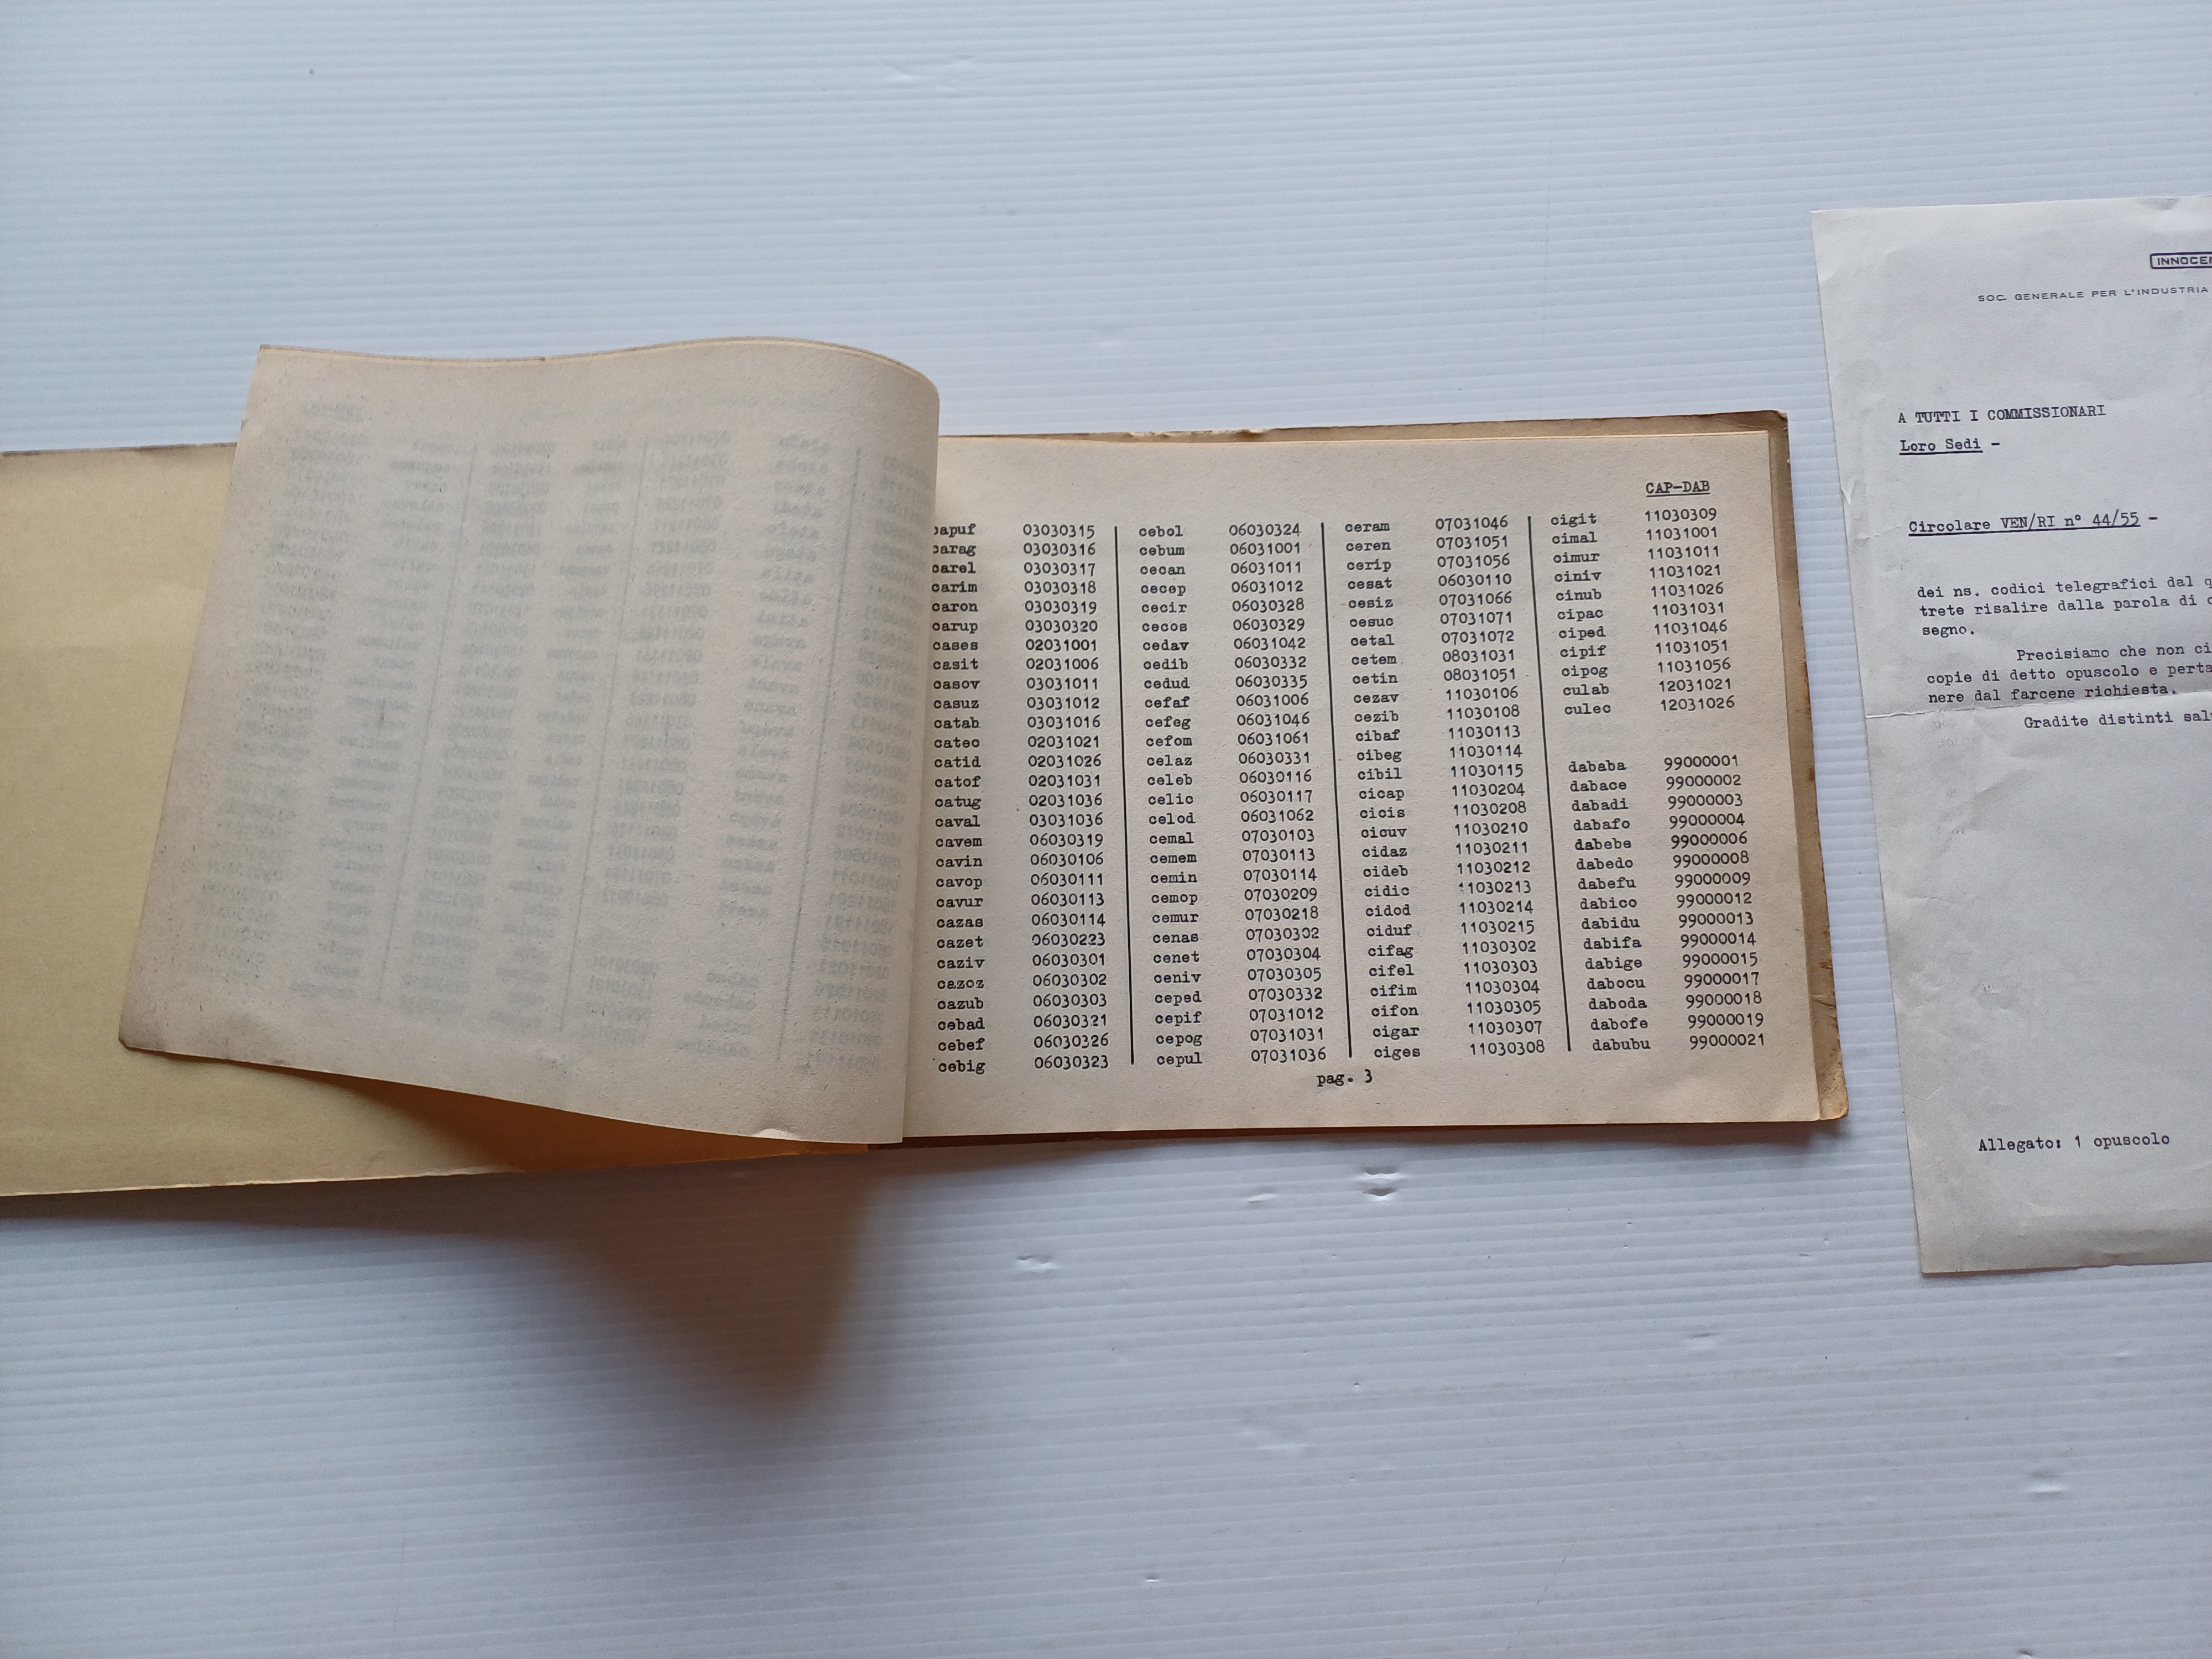 CAP-DAB
capuf 03030315 cebol 06030324 ceram 07031046 cigit 11030309
carag 03030316 cebum 06031001 ceren 07031051 cimal 11031001
carel 03030317 cecan 06031011 cerip 07031056 cimur 11031011
carim 03030318 cecep 06031012 cesat 06030110 ciniv 11031021
caron 03030319 cecir 06030328 cesiz 07031066 cinub 11031026
carup 03030320 cecos 06030329 cesuc 07031071 cipac 11031031
cases 02031001 cedav 06031042 cetal 07031072 ciped 11031046
casit 02031006 cedib 06030332 cetem 08031031 cipif 11031051
casov 03031011 cedud 06030335 cetin 08031051 cipog 11031056
casuz 03031012 cefaf 06031006 cezav 11030106 culab 12031021
catab 03031016 cefeg 06031046 cezib 11030108 culec 12031026
catec 02031021 cefom 06031061 cibaf 11030113
catid 02031026 celaz 06030331 cibeg 11030114
catof 02031031 celeb 06030116 cibil 11030115 dababa 99000001
catug 02031036 celic 06030117 cicap 11030204 dabace 99000002
caval 03031036 celod 06031062 cicis 11030208 dabadi 99000003
cavem 06030319 cemal 07030103 cicuv 11030210 dabafo 99000004
cavin 06030106 cemem 07030113 cidaz 11030211 dabebe 99000006
cavop 06030111 cemin 07030114 cideb 11030212 dabedo 99000008
cavur 06030113 cemop 07030209 cidic 11030213 dabefu 99000009
cazas 06030114 cemur 07030218 cidod 11030214 dabico 99000012
cazet 06030223 cenas 07030302 ciduf 11030215 dabidu 99000013
caziv 06030301 cenet 07030304 cifag 11030302 dabifa 99000014
cazoz 06030302 ceniv 07030305 cifel 11030303 dabige 99000015
cazub 06030303 ceped 07030332 cifim 11030304 dabocu 99000017
cebad 06030321 cepif 07031012 cifon 11030305 daboda 99000018
cebef 06030326 cepog 07031031 cigar 11030307 dabofe 99000019
cebig 06030323 cepul 07031036 ciges 11030308 dabubu 99000021
pag. 3
INNOCEN
SOC. GENERALE PER L'INDUSTRIA
A TUTTI I COMMISSIONARI
Loro Sedi -
Circolare VEN/RI n° 44/55 -
dei ns. codici telegrafici dal q
trete risalire dalla parola di c
segno.
Precisiamo che non ci
copie di detto opuscolo e perta
nere dal farcene richiesta.
Gradite distinti sal
Allegato: 1 opuscolo